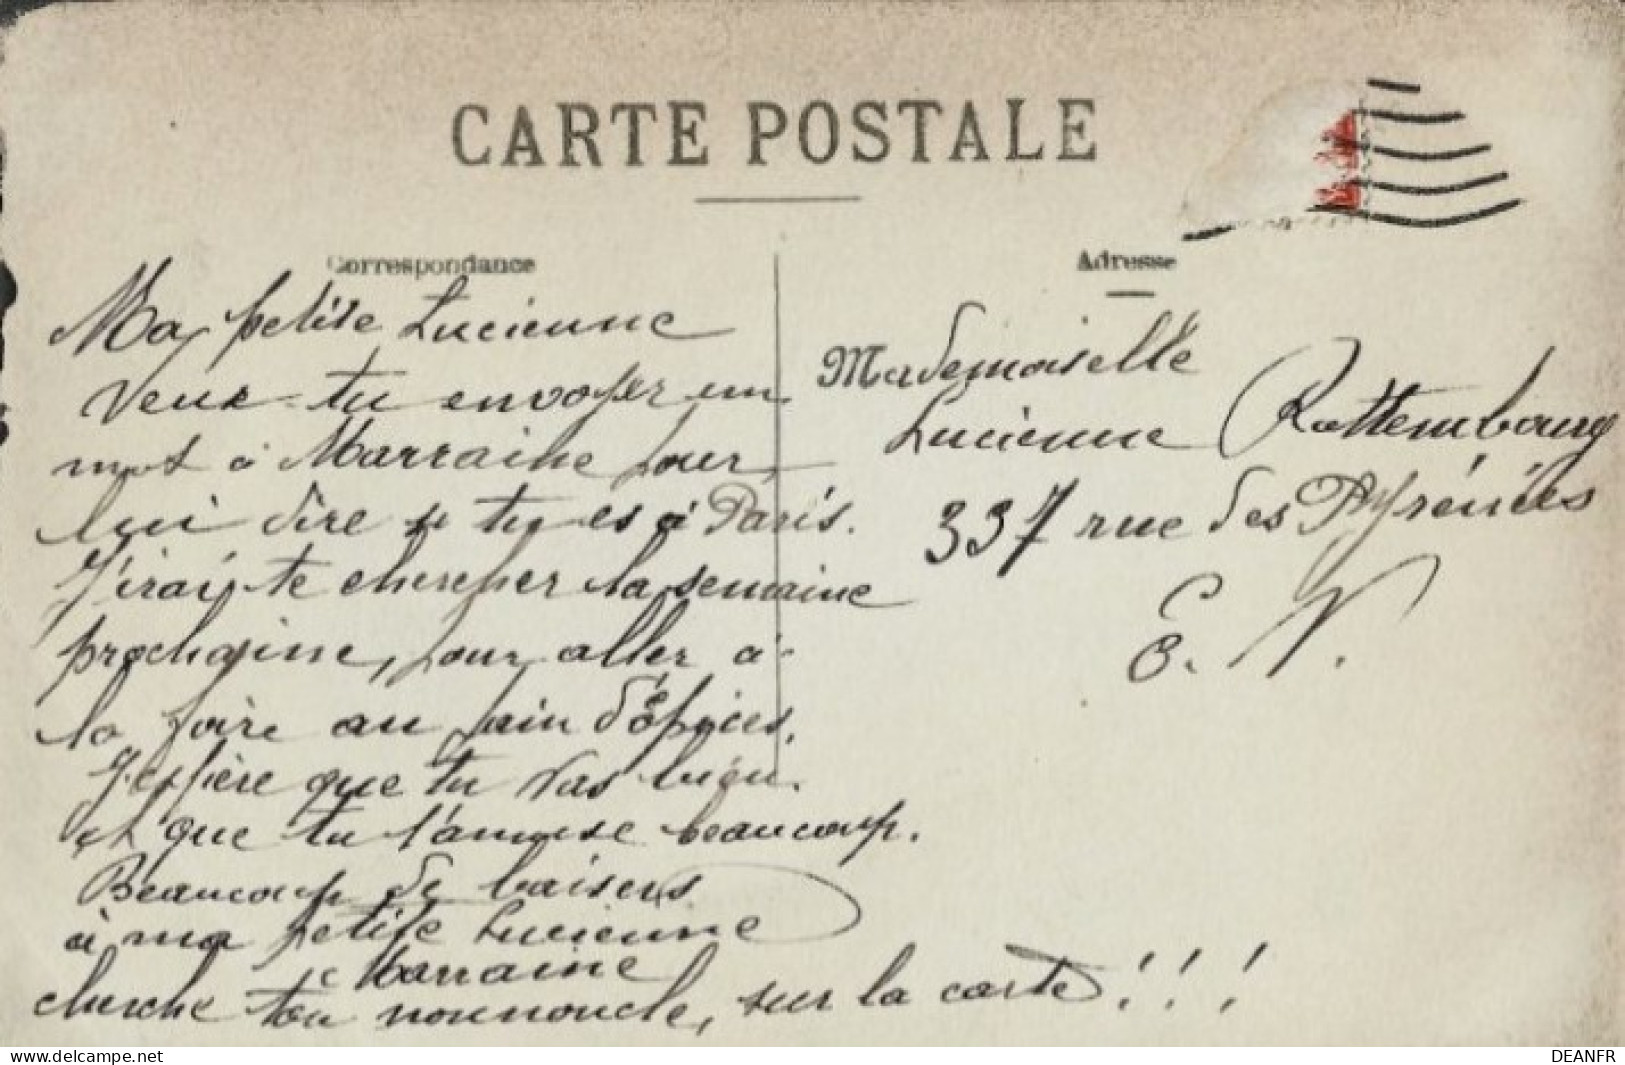 CARTE POSTALE
Correspondance
Ma petite Lucienne
Veux-tu envoyer un
mot à Marraine pour
lui dire si tu es à Paris.
J'irai te chercher la semaine
prochaine, pour aller à
la foire au pain d'épices.
J'espère que tu vas bien.
et que tu t'amuse beaucoup.
Beaucoup de baisers
à ma petite Lucienne
Marraine
cherche ton nounouche, sur la carte!!!
Adresse
Mademoiselle
Lucienne Rottembourg
337 rue des Pyrénées
E. V.
www.delcampe.net
DEANFR